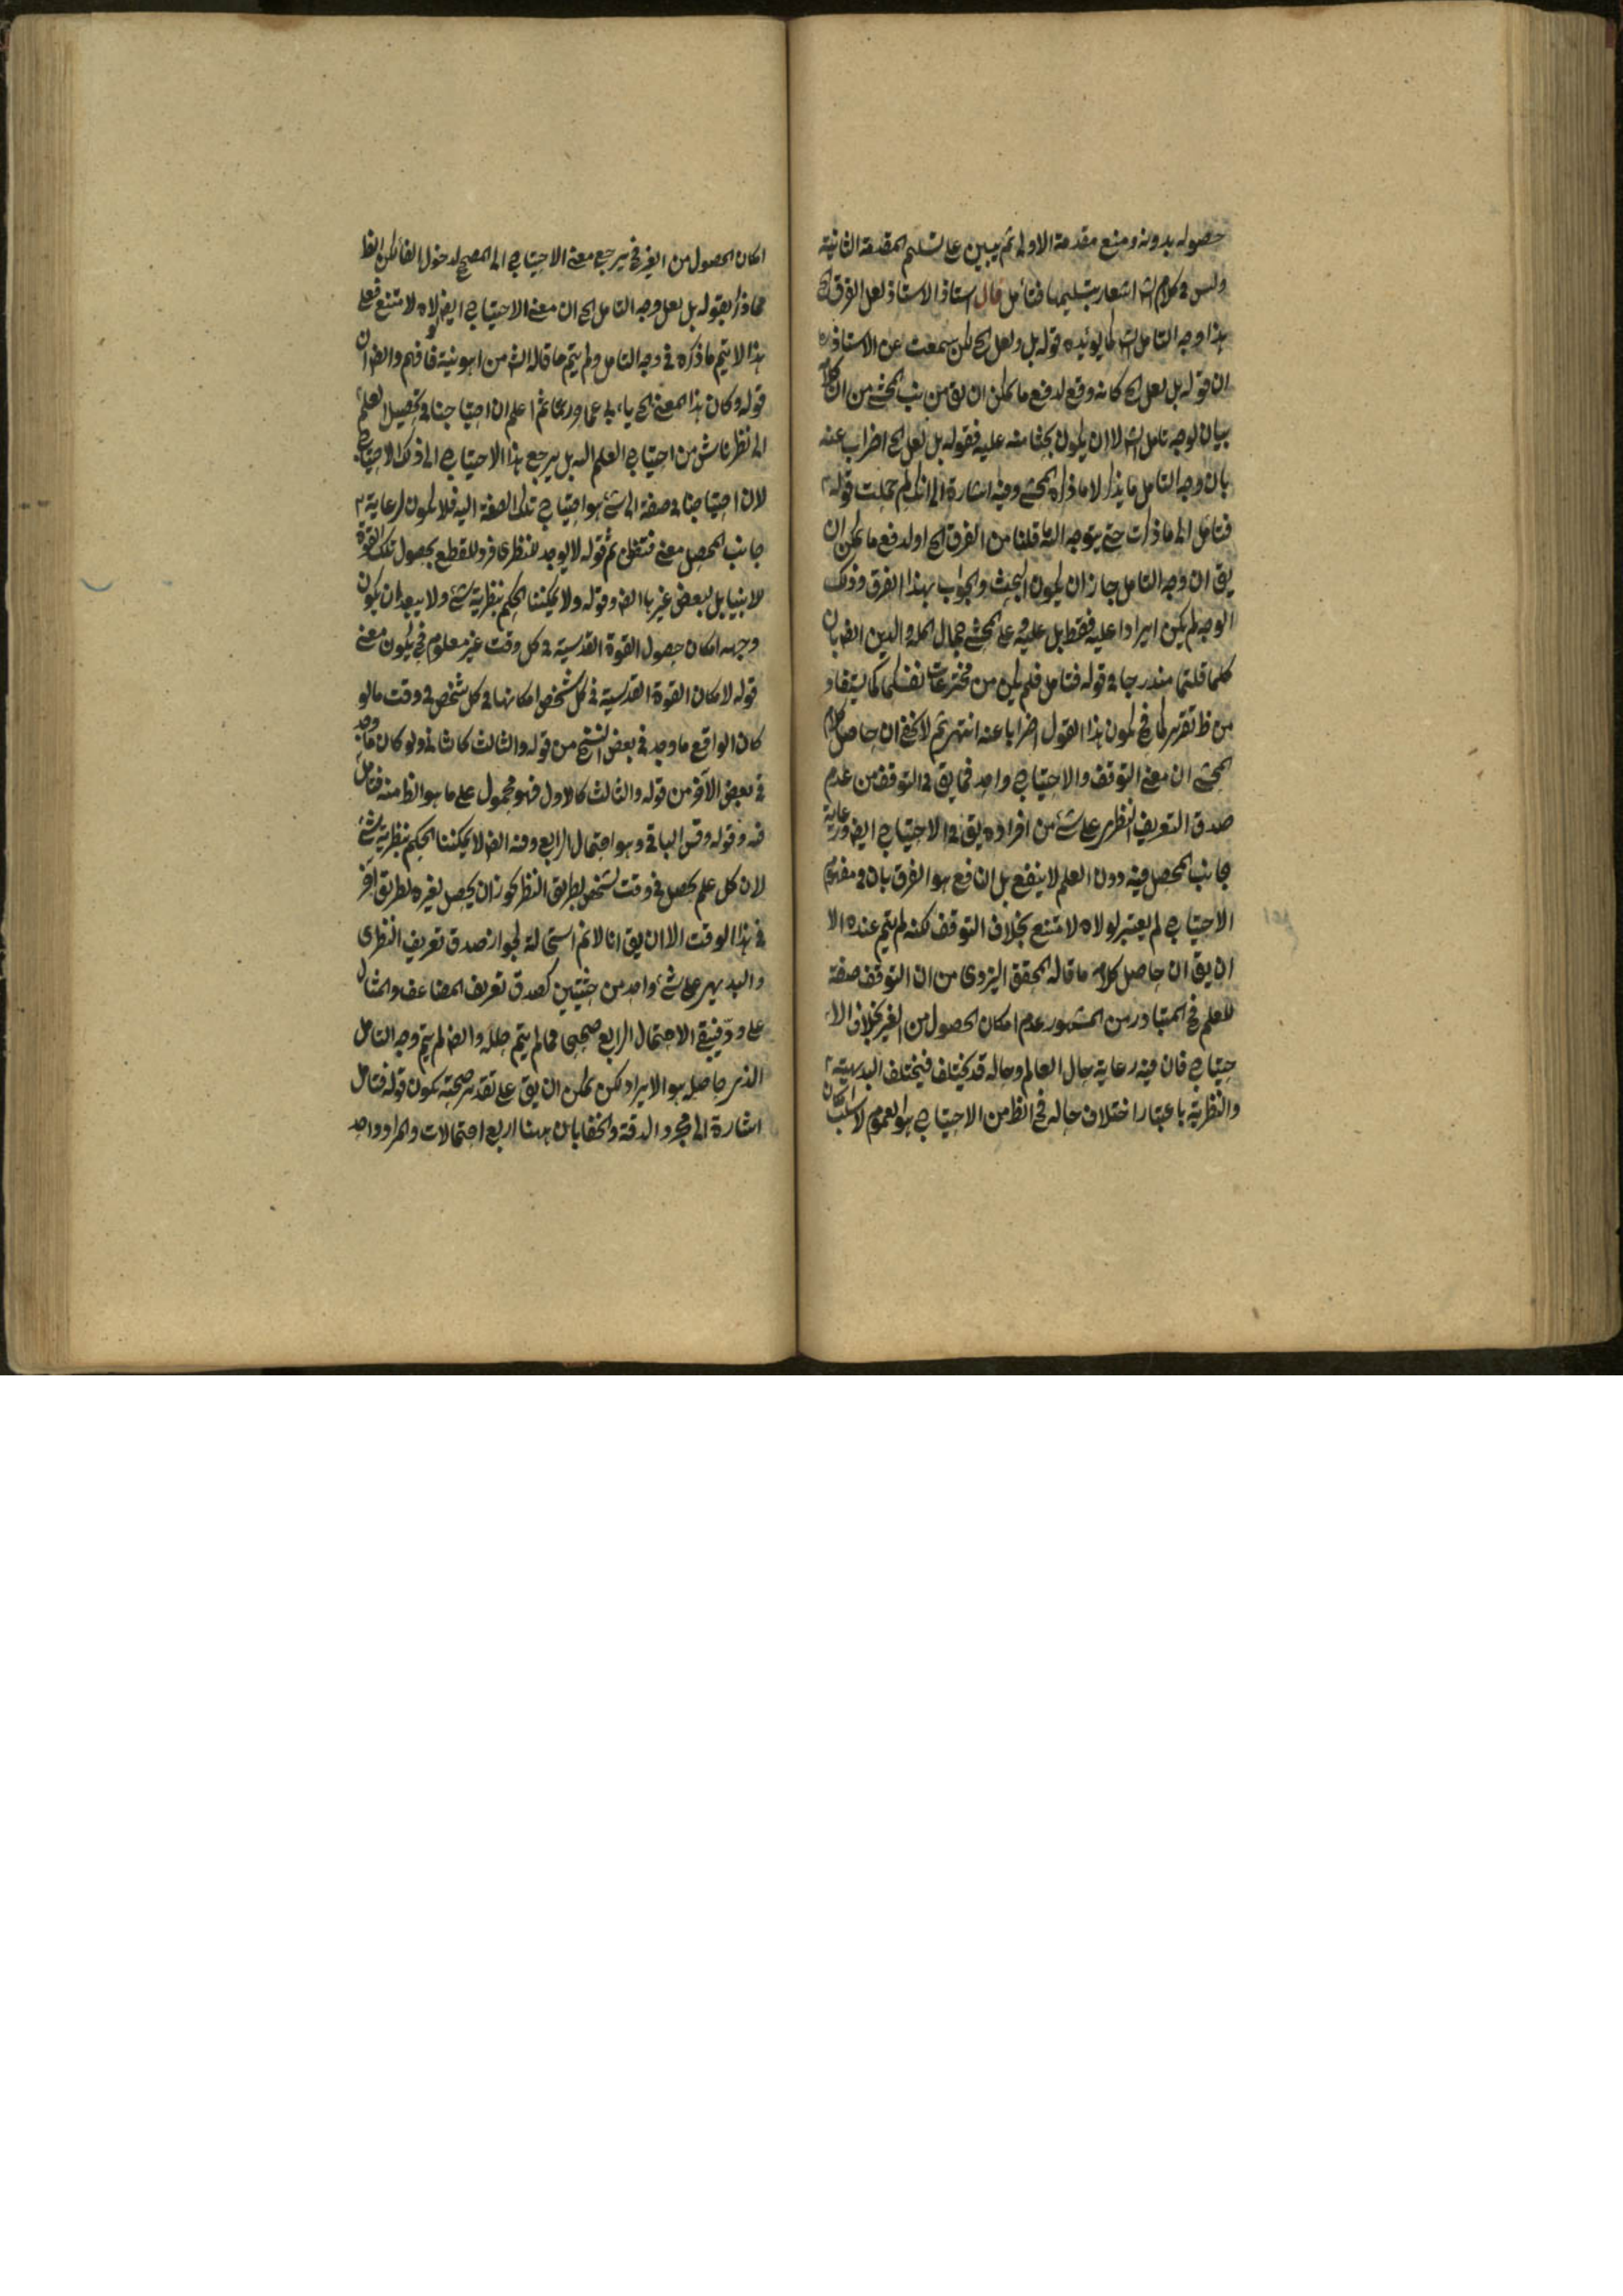 حصوله بدونه ومنع مقدمة الاولى ثم يبين على تسليم المقدمة الثانية
وليس فى كلام الش اشعار بتسليمها فتأمل قال استاذ الاستاذ لعل الفرق الخ
هذا وجه التامل الش كما يؤيده قوله بل ولعل الخ لكن سمعت عن الاستاذ
ان قوله بل لعل الخ كانه وقع لدفع ما يمكن ان يق من المحشى من ان
بيان لوجه تامل الش لا ان يكون بحثا منه عليه فقوله بل لعل الخ اضراب عنه
بان وجه التامل ما يذكر لا ما ذكره المحشى وفيه اشارة الى انك لم حملت قوله
فتامل الى ما ذكرت حتى يتوجه قلنا من الفرق الخ او لدفع ما يمكن ان
يق ان وجه التامل جاز ان يكون البحث والجواب بهذا الفرق وذلك
الوجه لم يكن ايرادا عليه فقط بل عليه وعلى المحشى جمال المله والدين ايض بان
كلما قلتما مندرجا فى قوله فتامل فلم يكن من مخترعات نفسكما كما يستفاد
من ظ تقريركما فح يكون هذا القول اضرابا عنه انتهى ثم لا يخفى ان حاصل كلام
المحشى ان معنى التوقف والاحتياج واحد فما يق فى التوقف من عدم
صدق التعريف النظرى على شئ من افراده يق فى الاحتياج ايض ورعاية
جانب المحصل فيه دون العلم لا ينفع بل النافع هو الفرق بان فى مفهوم
الاحتياج لم يعتبر لولاه لامتنع بخلاف التوقف لكنه لم يتم عنده الا
ان يق ان حاصل كلامه ما قاله المحقق اليزدى من ان التوقف صفة
للعلم فح المتبادر من المشهور عدم امكان الحصول من الغير بخلاف الا
حتياج فان فيه رعاية حال العالم وحاله قد يختلف فيختلف البديهية
والنظرية باعتبار اختلاف حاله فح الظ من الاحتياج هو العموم لا سلب
امكان الحصول من الغير فح يرجع معنى الاحتياج الى المصحح لدخول الفا لكن الظ
مما ذكر بقوله بل لعل وجه التامل الخ ان معنى الاحتياج ايض لولاه لامتنع فعلى
هذا لا يتم ما ذكره فى وجه التامل ولم يتم ما قاله الش من اهونية فافهم وايض ان
قوله وكان هذا المعنى الخ ثم اعلم ان احتياجنا فى تحصيل العلم
الى نظر ناش من احتياج العلم اليه بل يرجع هذا الاحتياج الى ذلك الاحتياج
لان احتياجنا فى صفة الى شئ هو احتياج تلك الصفة اليه فلا يكون لرعاية
جانب المحصل معنى فتفطن ثم قوله لا يوجد للنظرى فرد للقطع بحصول تلك القوة
للانبيا بل لبعض غيرها ايض وقوله ولا يمكننا الحكم بنظرية شئ ولا يبعد ان يكون
وجهه امكان حصول القوة القدسية فى كل وقت غير معلوم فح يكون معنى
قوله لامكان القوة القدسية فى كل شخص امكانها فى كل شخص فى وقت ما لو
كان الواقع ما وجد فى بعض النسخ من قوله والثالث كالثانى ولو كان ما وجد
فى بعض الآخر من قوله والثالث كالاول فهو محمول على ما هو الظ منه فتامل
فيه وقوله وقس الباقى وهو احتمال الرابع وفيه ايض لا يمكننا الحكم بنظرية شئ
لان كل علم يحصل فى وقت لشخص بطريق النظر يجوز ان يحصل لغيره بطريق آخر
فى هذا الوقت الا ان يق انا لا نم استحالة لجواز صدق تعريف النظرى
والبديهى على شئ واحد من حيثيتين كصدق تعريف المضاعف والمثال
على ود فيبقى الاحتمال الرابع صحيحا فما لم يتم وايض لم يتم وجه التامل
الذى حاصله هو الايراد لكن يمكن ان يق على تقدير صحته يكون قوله فتامل
اشارة الى مجرد الدقة والخفا بان ههنا اربع احتمالات والمراد واحد